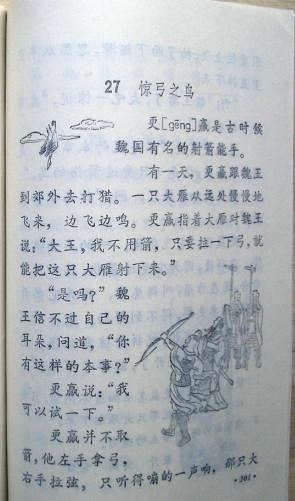 27 惊弓之鸟
更[gēng]羸是古时候
魏国有名的射箭能手。
有一天，更羸跟魏王
到郊外去打猎。一只大雁从远处慢慢地
飞来，边飞边鸣。更羸指着大雁对魏王
说：“大王，我不用箭，只要拉一下弓，就
能把这只大雁射下来。”
“是吗？”魏
王信不过自己的
耳朵，问道，“你
有这样的本事？”
更羸说：“我
可以试一下。”
更羸并不取
箭，他左手拿弓，
右手拉弦，只听得嘣的一声响，那只大
·201·